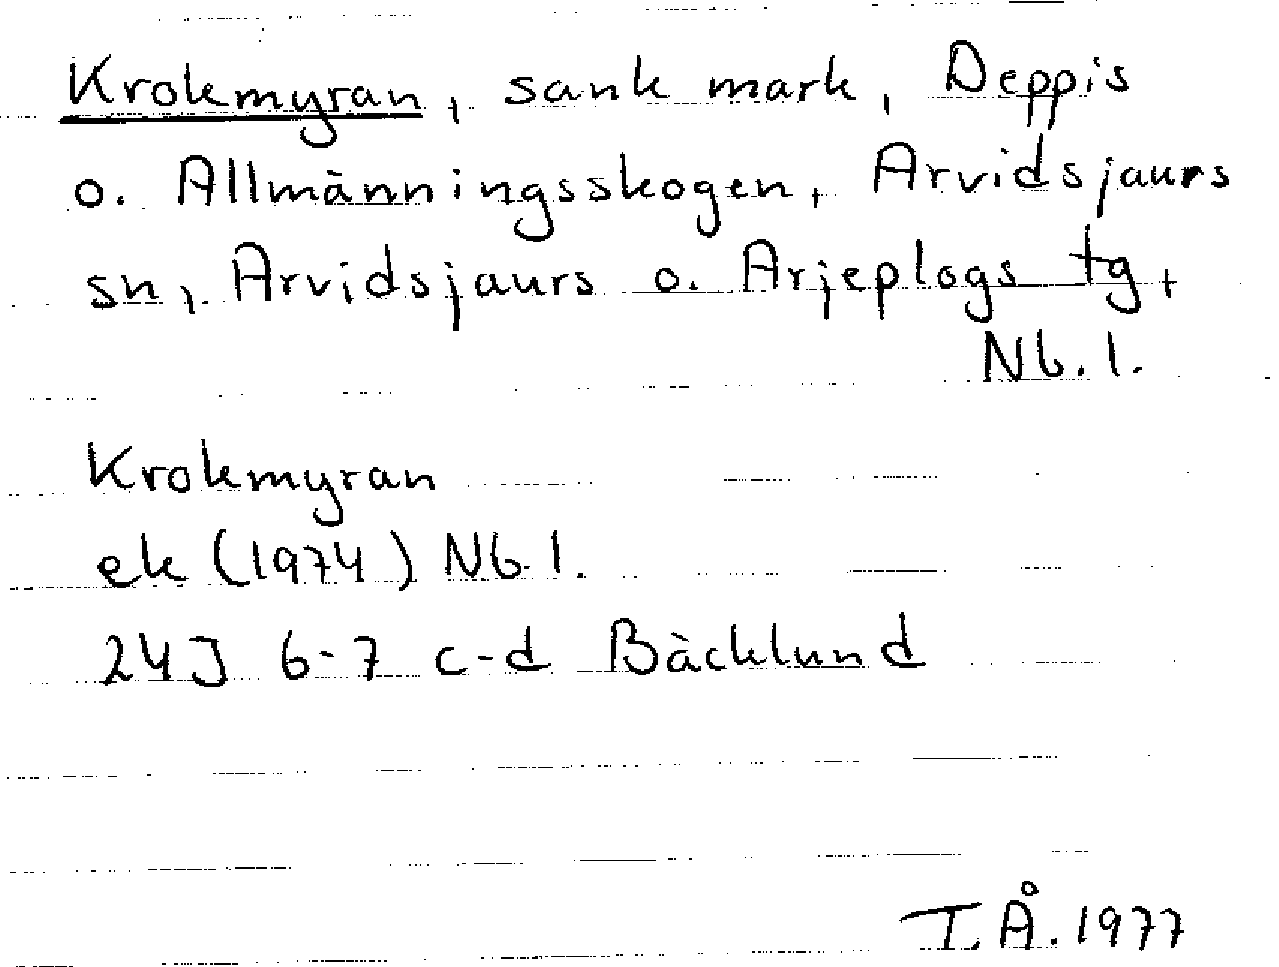 Krokmyran, sank mark, Deppis
o. Allmänningsskogen, Arvidsjaurs
sn, Arvidsjaurs o. Arjeplogs tg,
Nb. l.
Krokmyran
ek (1974) Nb. l.
24J 6-7 c-d Bäcklund
T. Å. 1977